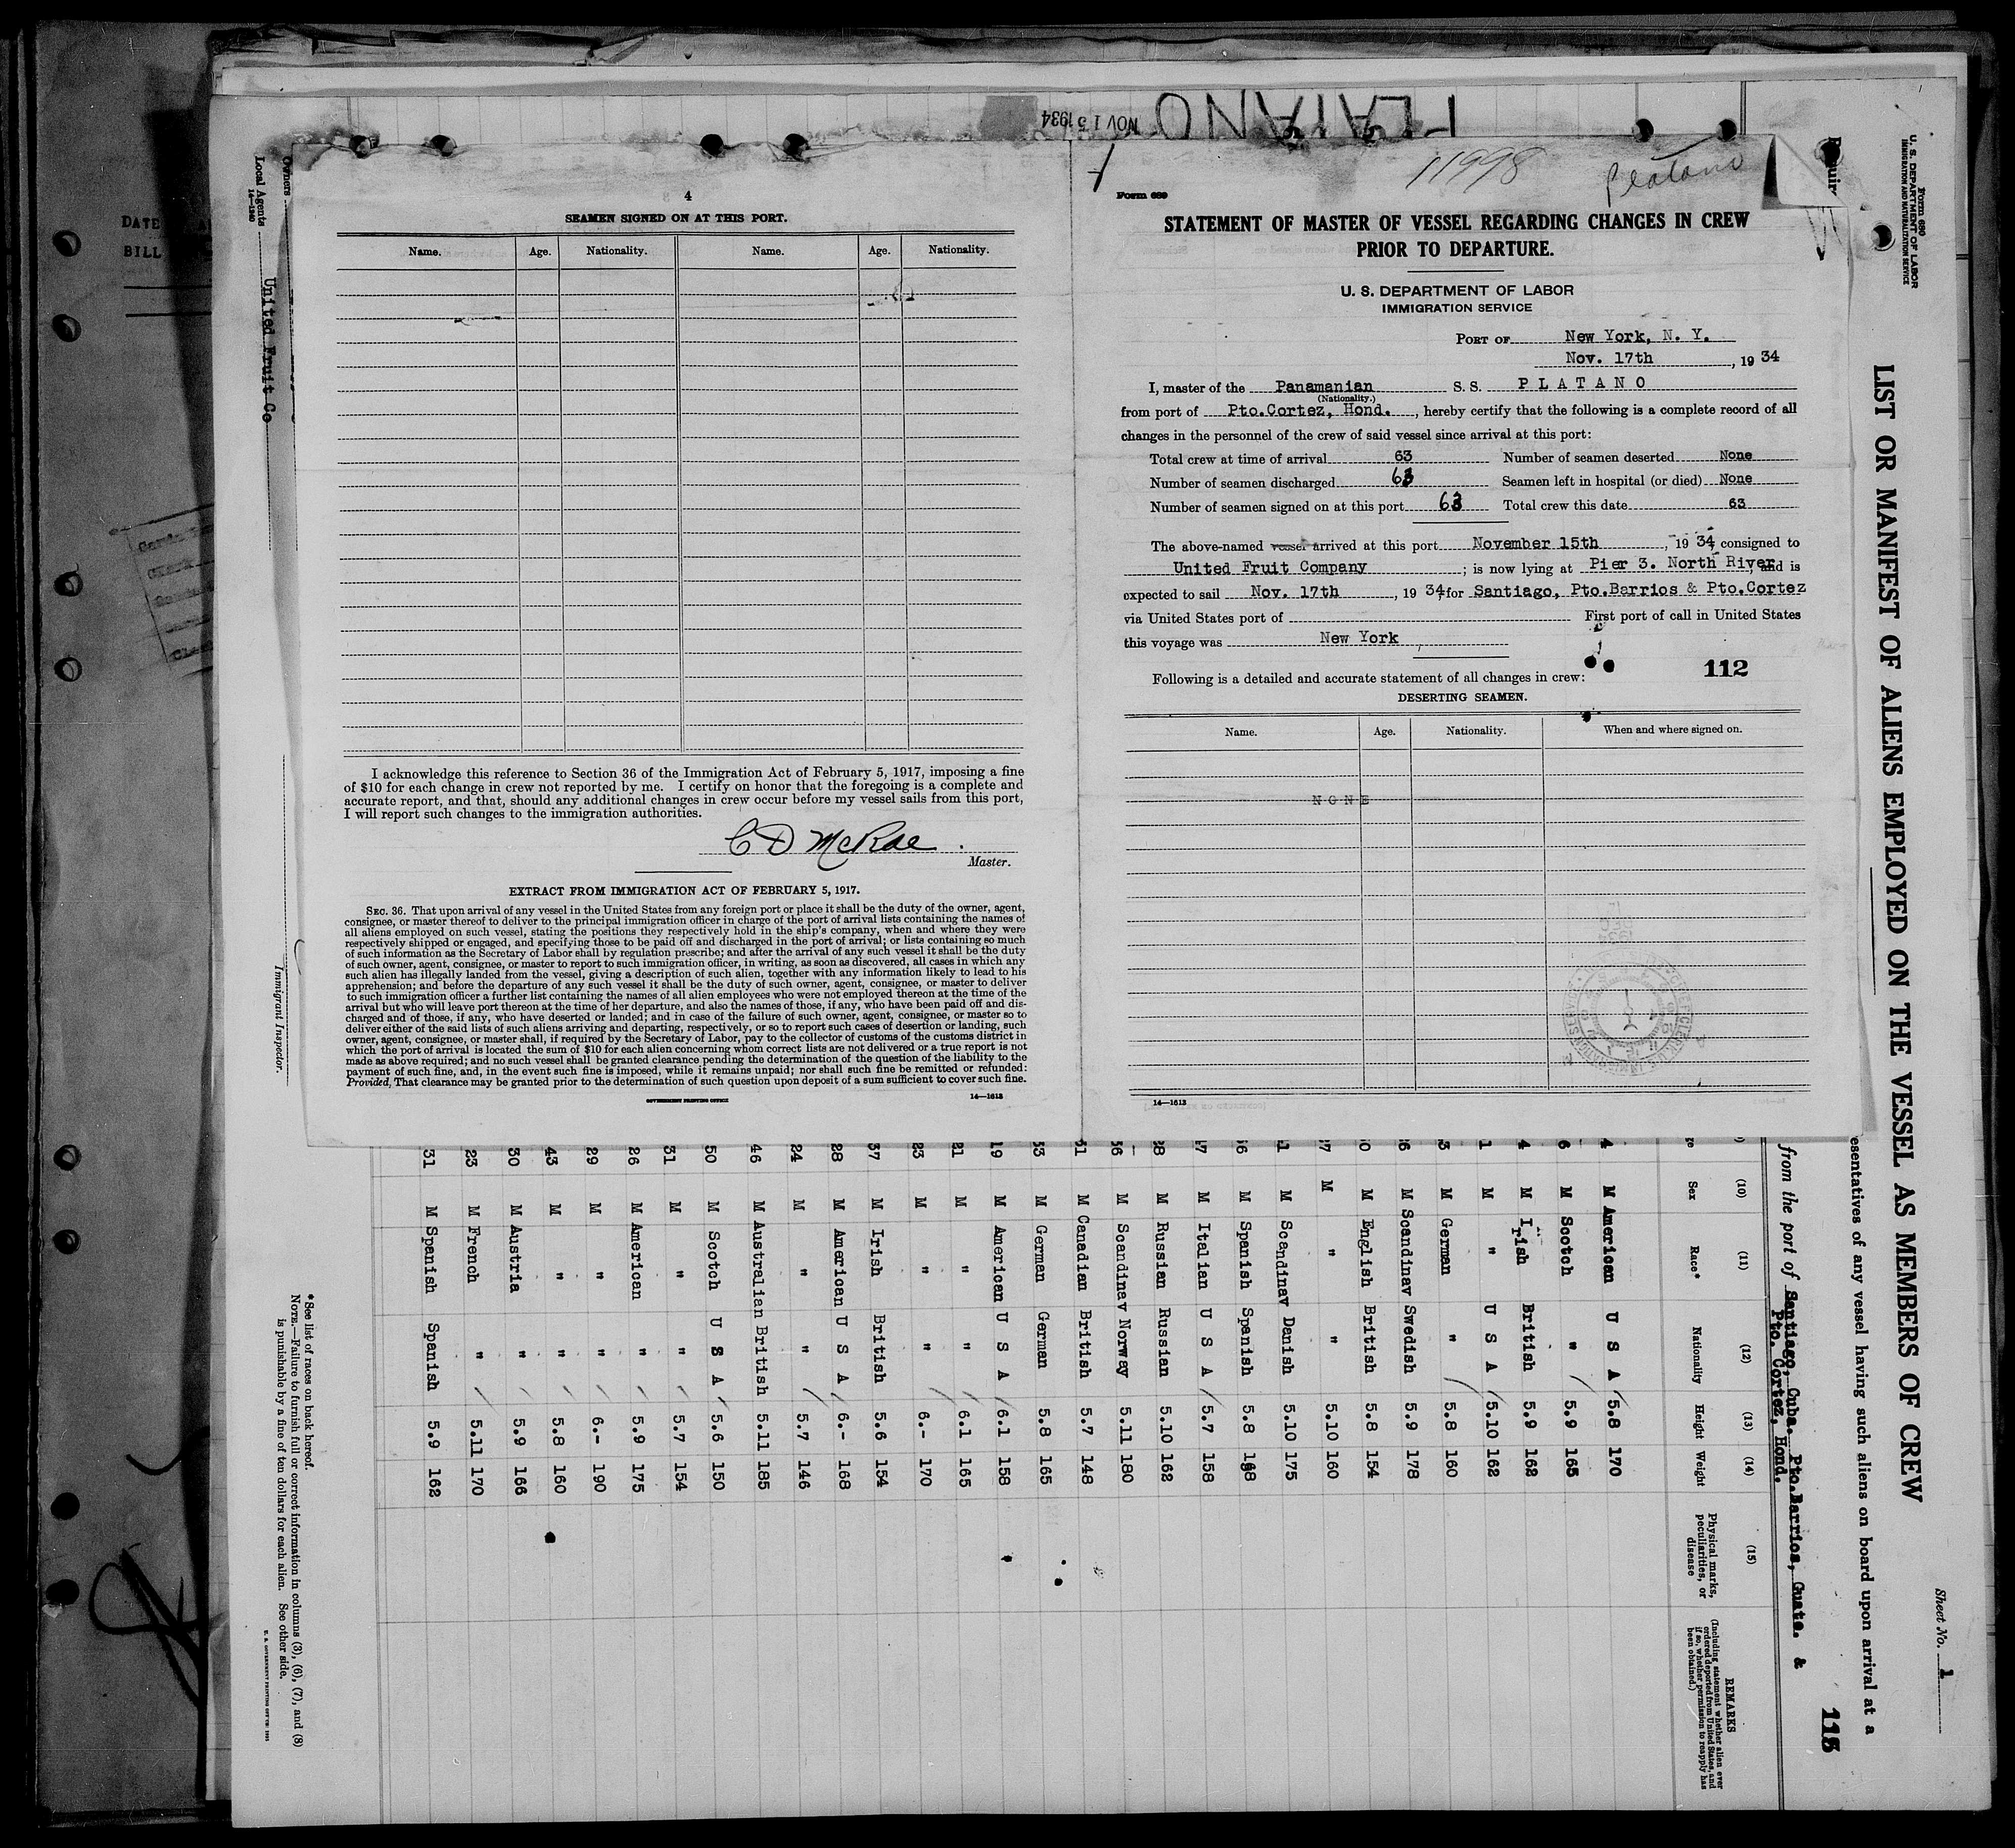 PLATANO
NOV 15 1934
4
SEAMEN SIGNED ON AT THIS PORT.
Name. Age. Nationality. Name. Age. Nationality.
I acknowledge this reference to Section 36 of the Immigration Act of February 5, 1917, imposing a fine
of $10 for each change in crew not reported by me. I certify on honor that the foregoing is a complete and
accurate report, and that, should any additional changes in crew occur before my vessel sails from this port,
I will report such changes to the immigration authorities.
C D McRae
Master.
EXTRACT FROM IMMIGRATION ACT OF FEBRUARY 5, 1917.
SEC. 36. That upon arrival of any vessel in the United States from any foreign port or place it shall be the duty of the owner, agent,
consignee, or master thereof to deliver to the principal immigration officer in charge of the port of arrival lists containing the names of
all aliens employed on such vessel, stating the positions they respectively hold in the ship's company, when and where they were
respectively shipped or engaged, and specifying those to be paid off and discharged in the port of arrival; or lists containing so much
of such information as the Secretary of Labor shall by regulation prescribe; and after the arrival of any such vessel it shall be the duty
of such owner, agent, consignee, or master to report to such immigration officer, in writing, as soon as discovered, all cases in which any
such alien has illegally landed from the vessel, giving a description of such alien, together with any information likely to lead to his
apprehension; and before the departure of any such vessel it shall be the duty of such owner, agent, consignee, or master to deliver
to such immigration officer a further list containing the names of all alien employees who were not employed thereon at the time of the
arrival but who will leave port thereon at the time of her departure, and also the names of those, if any, who have been paid off and dis-
charged and of those, if any, who have deserted or landed; and in case of the failure of such owner, agent, consignee, or master so to
deliver either of the said lists of such aliens arriving and departing, respectively, or so to report such cases of desertion or landing, such
owner, agent, consignee, or master shall, if required by the Secretary of Labor, pay to the collector of customs of the customs district in
which the port of arrival is located the sum of $10 for each alien concerning whom correct lists are not delivered or a true report is not
made as above required; and no such vessel shall be granted clearance pending the determination of the question of the liability to the
payment of such fine, and, in the event such fine is imposed, while it remains unpaid; nor shall such fine be remitted or refunded:
Provided, That clearance may be granted prior to the determination of such question upon deposit of a sum sufficient to cover such fine.
GOVERNMENT PRINTING OFFICE 14—1613
11998 Platano
Form 689
STATEMENT OF MASTER OF VESSEL REGARDING CHANGES IN CREW
PRIOR TO DEPARTURE.
U. S. DEPARTMENT OF LABOR
IMMIGRATION SERVICE
PORT OF New York, N. Y.
Nov. 17th, 19 34
I, master of the Panamanian S. S. P L A T A N O
(Nationality.)
from port of Pto.Cortez, Hond., hereby certify that the following is a complete record of all
changes in the personnel of the crew of said vessel since arrival at this port:
Total crew at time of arrival 63 Number of seamen deserted None
Number of seamen discharged 63 Seamen left in hospital (or died) None
Number of seamen signed on at this port 63 Total crew this date 63
The above-named vessel arrived at this port November 15th, 19 34, consigned to
United Fruit Company; is now lying at Pier 3. North River and is
expected to sail Nov. 17th, 19 34, for Santiago, Pto.Barrios & Pto.Cortez
via United States port of First port of call in United States
this voyage was New York
112
Following is a detailed and accurate statement of all changes in crew:
DESERTING SEAMEN.
Name. Age. Nationality. When and where signed on.
N O N E
14—1613
DATE
BILL
Owners
Local Agents United Fruit Co
14—1240
Immigrant Inspector.
Form 680
U. S. DEPARTMENT OF LABOR
IMMIGRATION AND NATURALIZATION SERVICE
Sheet No. 1
LIST OR MANIFEST OF ALIENS EMPLOYED ON THE VESSEL AS MEMBERS OF CREW
esentatives of any vessel having such aliens on board upon arrival at a
115
from the port of Santiago, Cuba. Pto.Barrios, Guate. &
Pto. Cortez, Hond.
(10) (11) (12) (13) (14) (15)
Sex Race* Nationality Height Weight Physical marks, peculiarities, or disease REMARKS
(Including statement whether alien ever ordered deported from United States, and if so, whether permission to reapply has been obtained.)
4 M American U S A 5.8 170
6 M Scotch " 5.9 165
4 M Irish British 5.9 162
1 M " U S A 5.10 162
3 M German " 5.8 160
6 M Scandinav Swedish 5.9 178
0 M English British 5.8 154
7 M " " 5.10 160
1 M Scandinav Danish 5.10 175
6 M Spanish Spanish 5.8 168
7 M Italian U S A 5.7 158
28 M Russian Russian 5.10 162
36 M Scandinav Norway 5.11 180
31 M Canadian British 5.7 148
33 M German German 5.8 165
19 M American U S A 6.1 158
21 M " " 6.1 165
23 M " " 6.- 170
37 M Irish British 5.6 154
28 M American U S A 6.- 168
24 M " " 5.7 146
46 M Australian British 5.11 185
50 M Scotch U S A 5.6 150
31 M " " 5.7 154
26 M American " 5.9 175
29 M " " 6.- 190
43 M " " 5.8 160
30 M Austria " 5.9 166
23 M French " 5.11 170
31 M Spanish Spanish 5.9 162
*See list of races on back hereof.
NOTE.—Failure to furnish full or correct information in columns (3), (6), (7), and (8)
is punishable by a fine of ten dollars for each alien. See other side.
U. S. GOVERNMENT PRINTING OFFICE